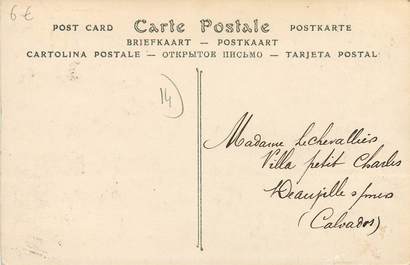 6 €
POST CARD Carte Postale POSTKARTE
BRIEFKAART — POSTKAART
CARTOLINA POSTALE — ОТКРЫТОЕ ПИСЬМО — TARJETA POSTAL
14
Madame Lechevallier
Villa petit Charles
s/mer
(Calvados)